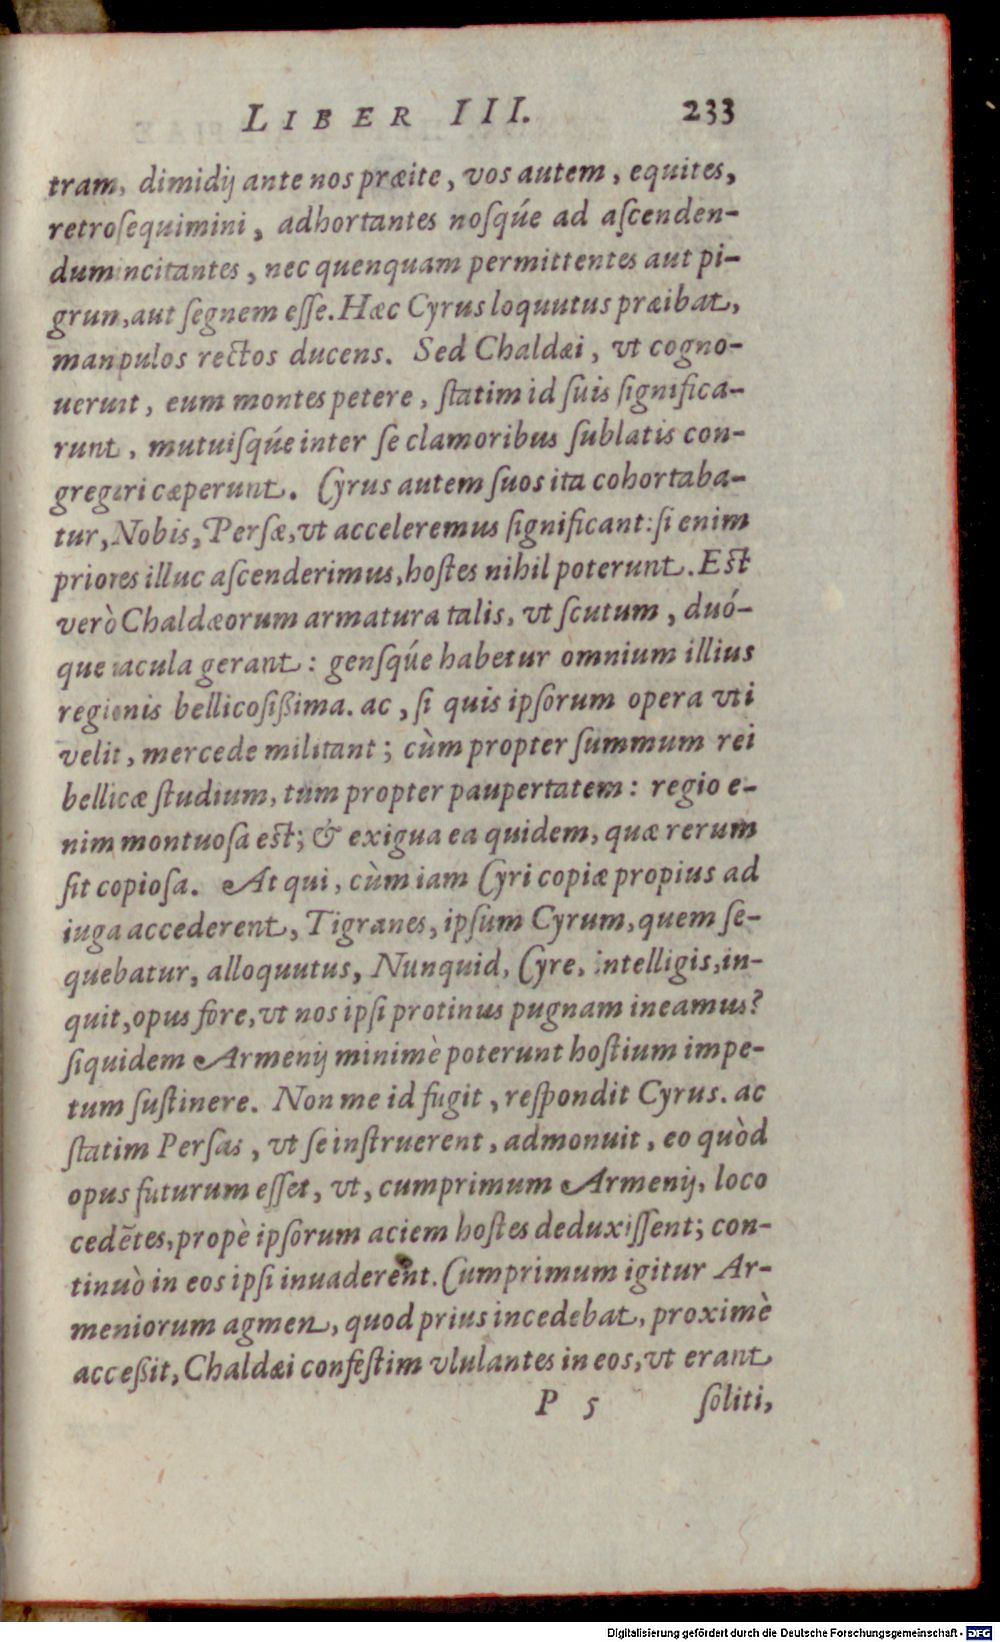 LIBER III. 233
tram, dimidij ante nos præite, vos autem, equites,
retrosequimini, adhortantes nosqúe ad ascenden-
dum incitantes, nec quenquam permittentes aut pi-
grum, aut segnem esse. Hæc Cyrus loquutus præibat,
manipulos rectos ducens. Sed Chaldæi, vt cogno-
uerunt, eum montes petere, statim id suis significa-
runt, mutuisqúe inter se clamoribus sublatis con-
gregari cæperunt. Cyrus autem suos ita cohortaba-
tur, Nobis, Persæ, vt acceleremus significant: si enim
priores illuc ascenderimus, hostes nihil poterunt. Est
verò Chaldæorum armatura talis, vt scutum, duó-
que iacula gerant: gensqúe habetur omnium illius
regionis bellicosißima. ac, si quis ipsorum opera vti
velit, mercede militant; cùm propter summum rei
bellicæ studium, tum propter paupertatem: regio e-
nim montuosa est; & exigua ea quidem, quæ rerum
sit copiosa. At qui, cùm iam Cyri copiæ propius ad
iuga accederent, Tigranes, ipsum Cyrum, quem se-
quebatur, alloquutus, Nunquid, Cyre, intelligis, in-
quit, opus fore, vt nos ipsi protinus pugnam ineamus?
siquidem Armenij minimè poterunt hostium impe-
tum sustinere. Non me id fugit, respondit Cyrus. ac
statim Persas, vt se instruerent, admonuit, eo quòd
opus futurum esset, vt, cumprimum Armenij, loco
cedẽtes, propè ipsorum aciem hostes deduxissent; con-
tinuò in eos ipsi inuaderent. Cumprimum igitur Ar-
meniorum agmen, quod prius incedebat, proximè
acceßit, Chaldæi confestim vlulantes in eos, vt erant
P 5 soliti,
Digitalisierung gefördert durch die Deutsche Forschungsgemeinschaft - DFG